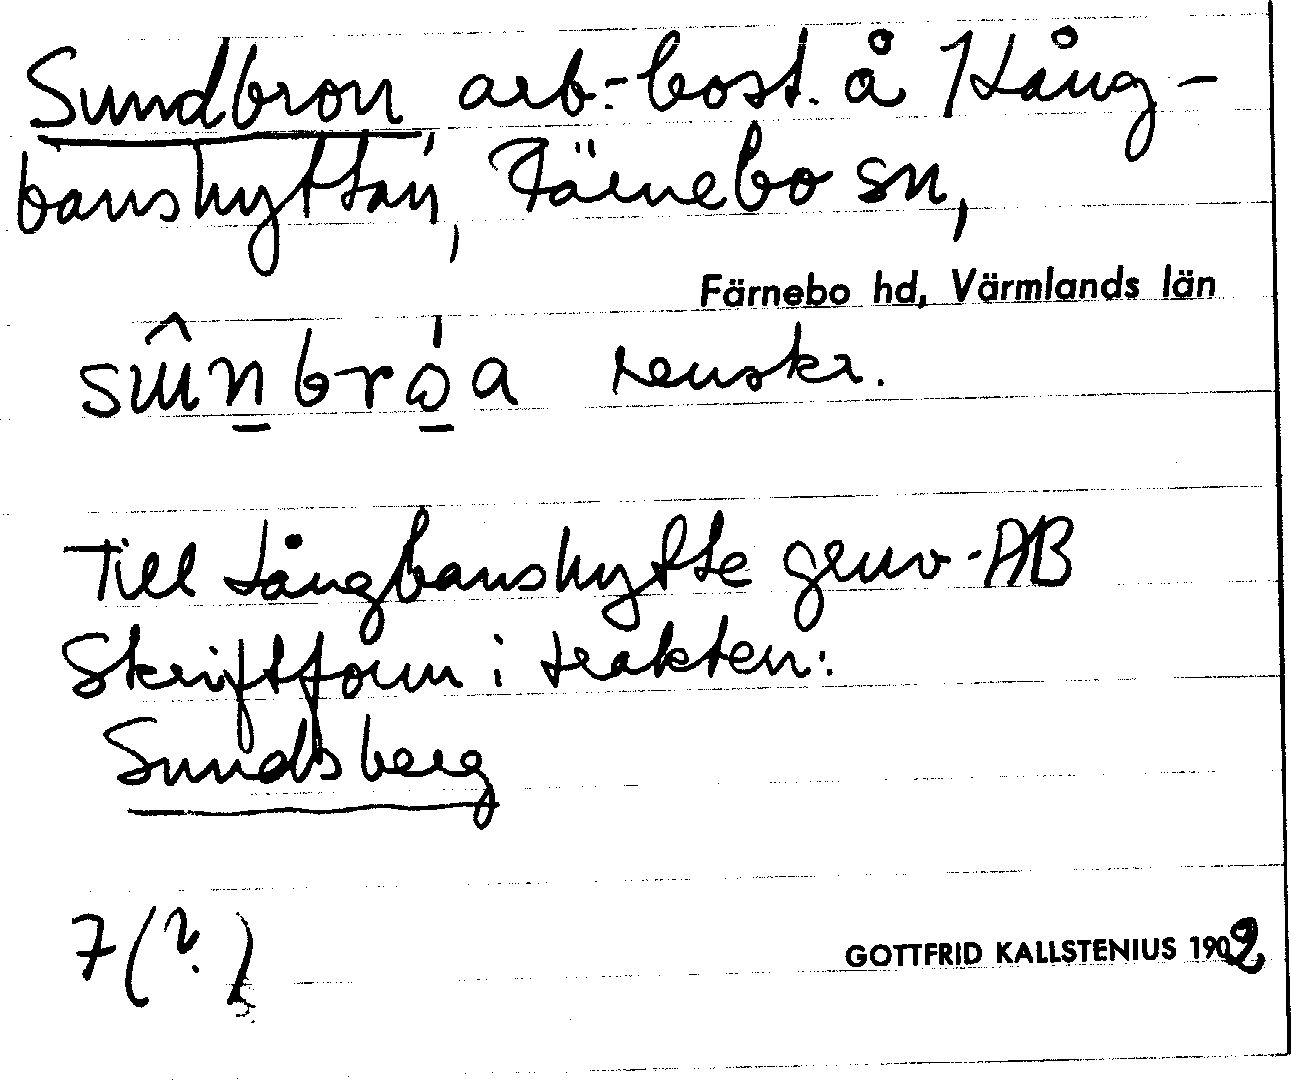 Sundbron arb.-bost. å 1 Lång-
banshyttan, Färnebo sn,
Färnebo hd, Värmlands län
renskr.
Till Långbanshytte gruv-AB
Skriftform i trakten:
Sundsberg
7 (?)
GOTTFRID KALLSTENIUS 1902